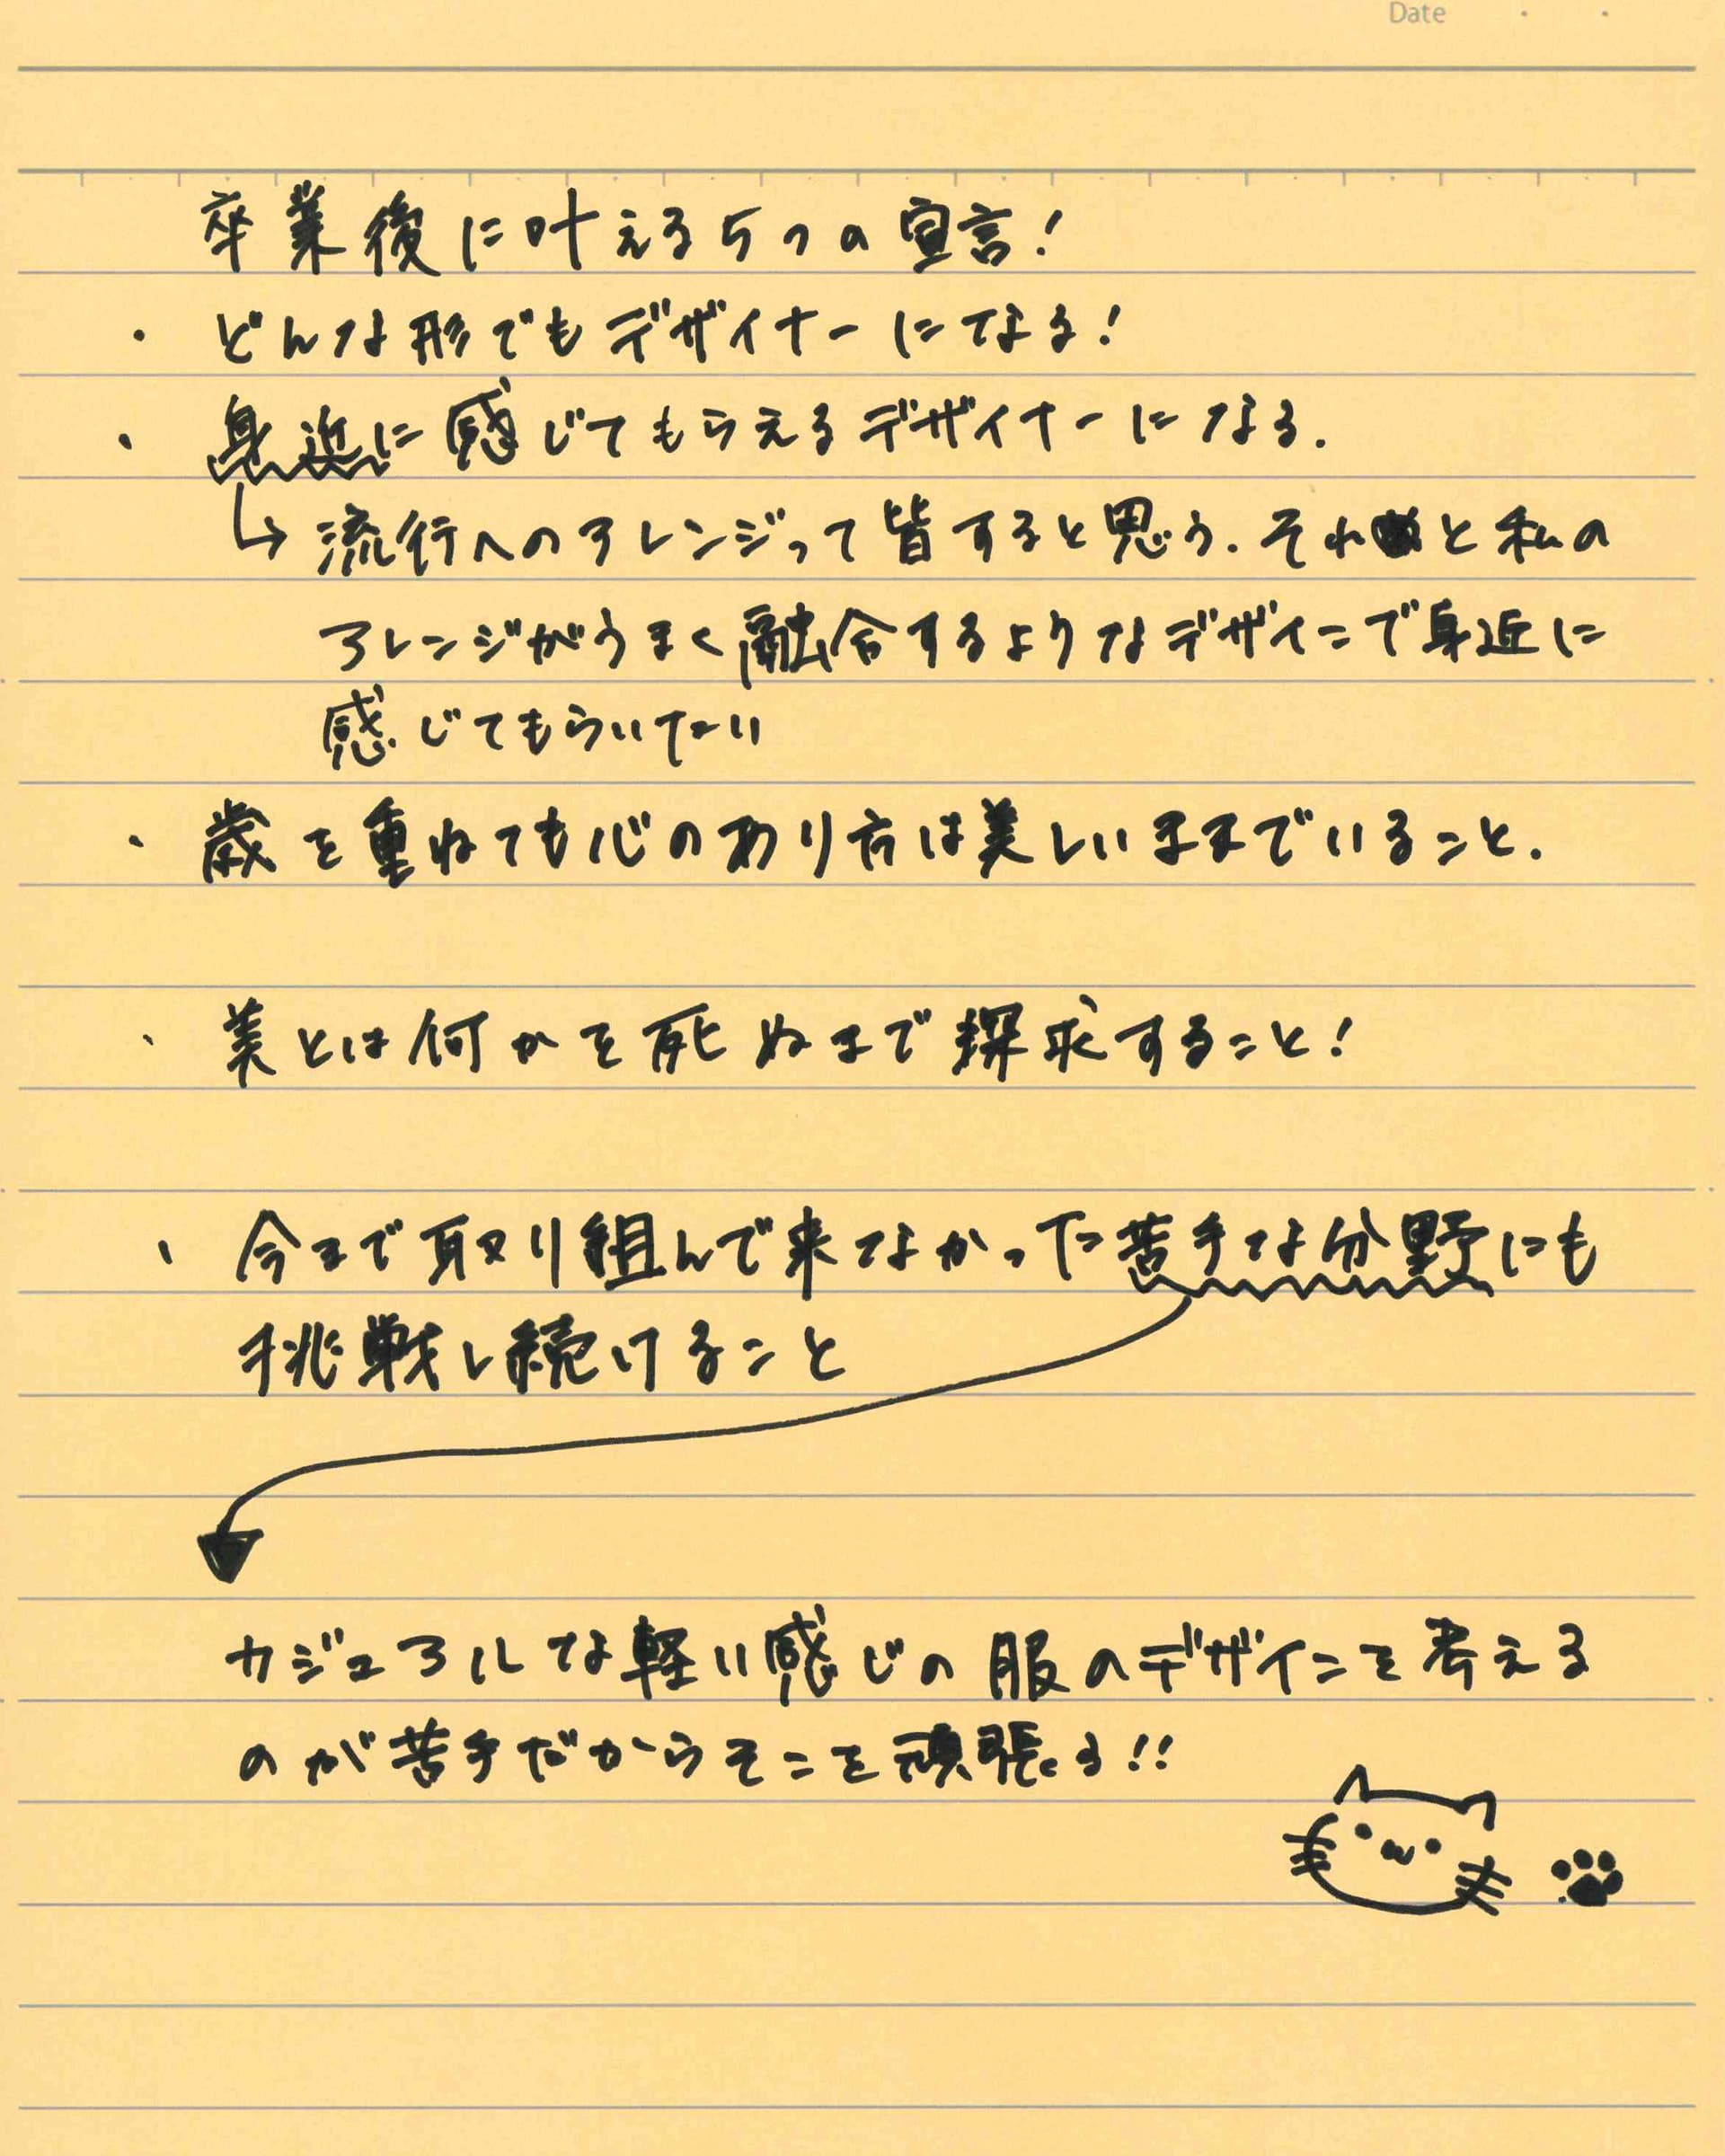 Date
卒業後に叶える5つの宣言!
・どんな形でもデザイナーになる!
・身近に感じてもらえるデザイナーになる.
↳流行へのアレンジって皆すると思う.それと私の
アレンジがうまく融合するようなデザインで身近に
感じてもらいたい
・歳を重ねても心のあり方は美しいままでいること.
・美とは何かを死ぬまで探求すること!
・今まで取り組んで来なかった苦手な分野にも
挑戦し続けること
カジュアルな軽い感じの服のデザインを考える
のが苦手だからそこを頑張る!!